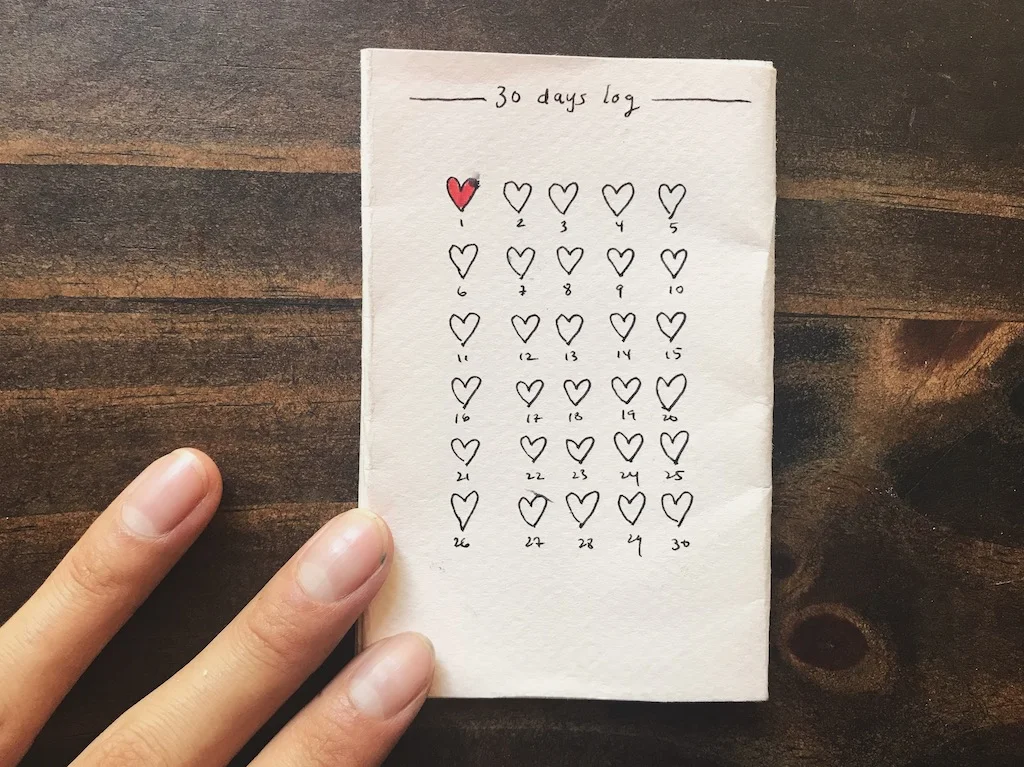 30 days log
1 2 3 4 5
6 7 8 9 10
11 12 13 14 15
16 17 18 19 20
21 22 23 24 25
26 27 28 29 30